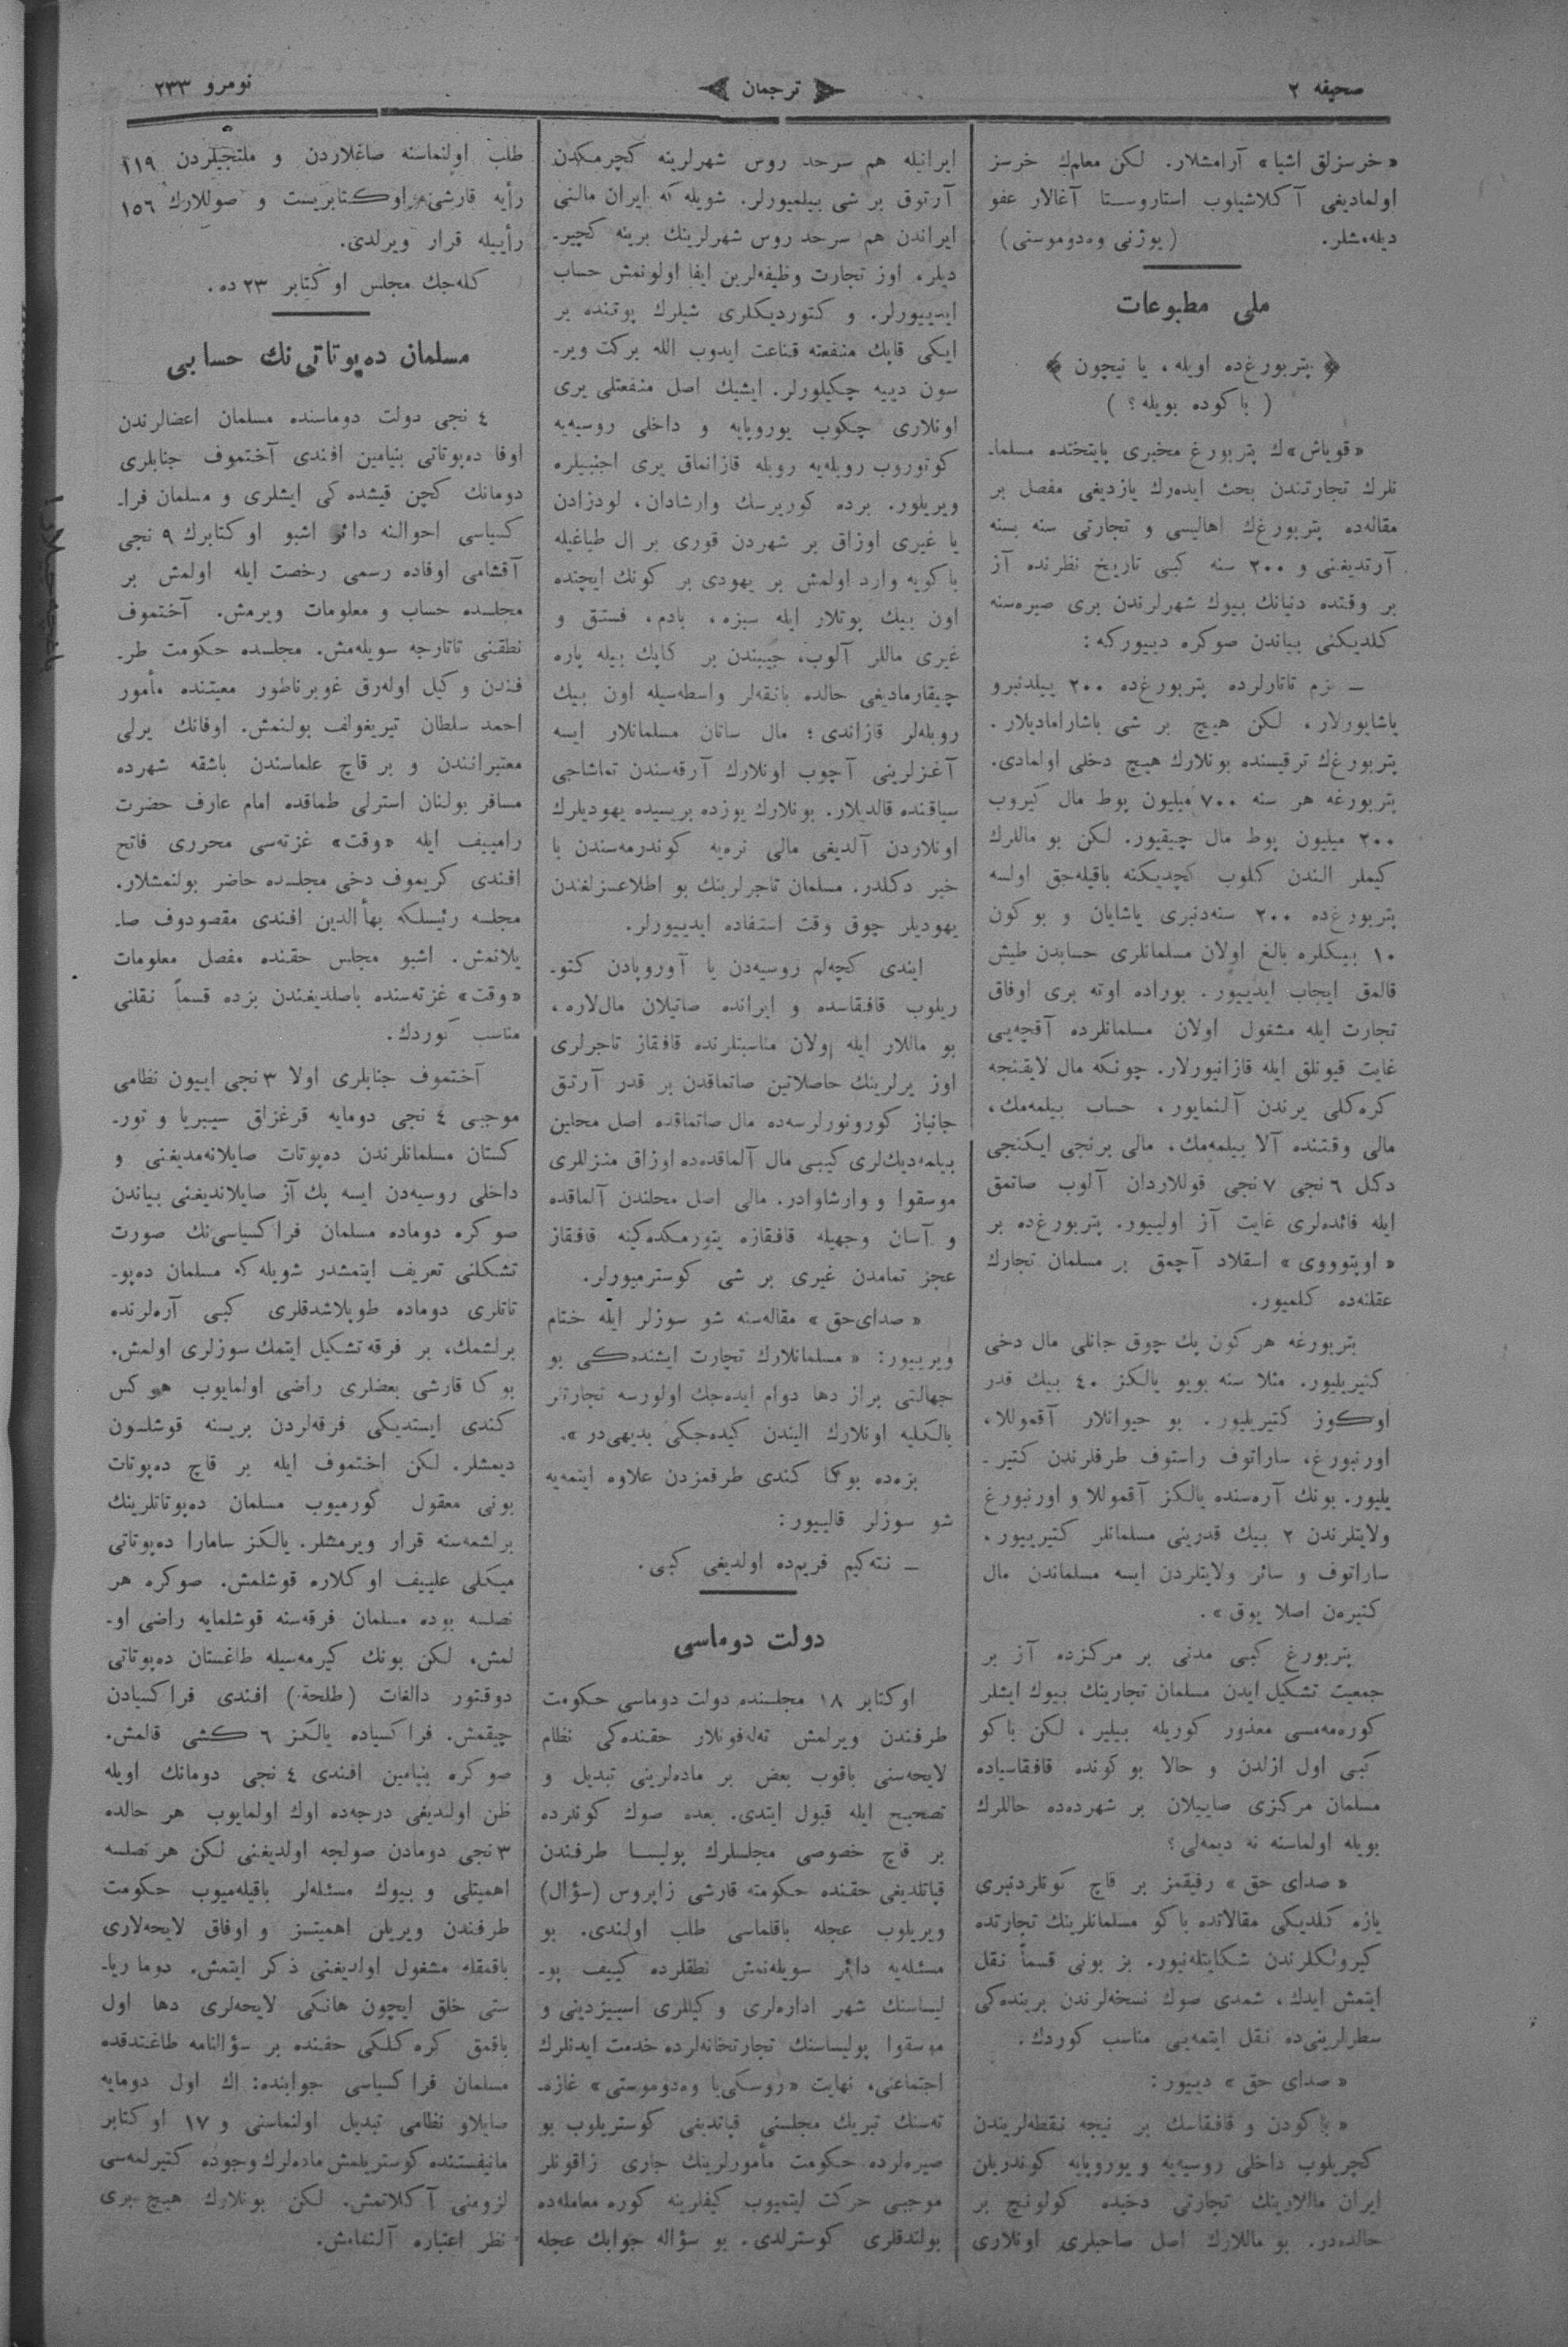 صحیفه ٢
ترجمان
نومرو ٢٣٣
«خرسزلق اشیا» آرامشلار. لكن معلم‌ك خرسز
اولمادیغی آكلاشیلوب استاروستا آغالار عفو
دیله‌مشلر. (یوژنی وه‌دوموستی)
ملی مطبوعات
پتربورغ‌ده اویله، یا نیچون
(باكوده بویله؟)
«قویاش»ك پتربورغ مخبری پایتختده مسلما-
نلرك تجارتندن بحث ایده‌رك یازدیغی مفصل بر
مقاله‌ده پتربورغ‌ك اهالیسی و تجارتی سنه بسنه
آرتدیغنی و ٢٠٠ سنه كبی تاریخ نظرنده آز
بر وقتده دنیانك بیوك شهرلرندن بری صیره‌سنه
كلدیكنی بیاندن صوكره دییوركه:
— بزم تاتارلرده پتربورغ‌ده ٢٠٠ ییلدنبرو
یاشایورلار، لكن هیچ بر شی باشارامادیلار.
پتربورغ‌ك ترقیسنده بونلارك هیچ دخلی اولمادی.
پتربورغه هر سنه ٧٠٠ میلیون پوط مال كیروب
٢٠٠ میلیون پوط مال چیقیور. لكن بو ماللرك
كیملر الندن كلوب كچدیكنه باقیله‌جق اولسه
پتربورغ‌ده ٢٠٠ سنه‌دنبری یاشایان و بو كون
١٠ بیكلره بالغ اولان مسلمانلری حسابدن طیش
قالمق ایجاب ایدییور. بوراده اوته بری اوفاق
تجارت ایله مشغول اولان مسلمانلرده آقچه‌یی
غایت قیونلق ایله قازانیورلار. چونكه مال لایقنجه
كره‌كلی یرندن آلنمایور، حساب بیلمه‌مك،
مالی وقتنده آلا بیلمه‌مك، مالی برنجی ایكنجی
دكل ٦ نجی ٧ نجی قوللاردان آلوب صاتمق
ایله فائده‌لری غایت آز اولییور. پتربورغ‌ده بر
«اوپتوووی» اسقلاد آچمق بر مسلمان تجارك
عقلنه‌ده كلمیور.
پتربورغه هر كون پك چوق جانلی مال دخی
كتیریلیور. مثلا سنه بویو یالكز ٤٠ بیك قدر
اوكوز كتیریلیور. بو حیوانلار آقموللا،
اورنبورغ، ساراتوف راستوف طرفلرندن كتیر-
یلیور. بونك آره‌سنده یالكز آقموللا و اورنبورغ
ولایتلرندن ٢ بیك قدرینی مسلمانلر كتیرییور.
ساراتوف و سائر ولایتلردن ایسه مسلماندن مال
كتیره‌ن اصلا یوق».
پتربورغ كبی مدنی بر مركزده آز بر
جمعیت تشكیل ایدن مسلمان تجارینك بیوك ایشلر
كوره‌مه‌مسی معذور كوریله بیلیر، لكن باكو
كبی اول ازلدن و حالا بو كونده قافقاسیاده
مسلمان مركزی صاییلان بر شهرده‌ده حاللرك
بویله اولماسنه نه دیمه‌لی؟
«صدای حق» رفیقمز بر قاچ كونلردنبری
یازه كلدیكی مقالاتده باكو مسلمانلرینك تجارتده
كیرولكلرندن شكایتله‌نیور. بز بونی قسماً نقل
ایتمش ایدك، شمدی صوك نسخه‌لرندن برینده‌كی
سطرلرینی‌ده نقل ایتمه‌یی مناسب كوردك.
«صدای حق» دییور:
«باكودن و قافقاسك بر نیچه نقطه‌لریندن
كچریلوب داخلی روسیه‌یه و یوروپایه كوندریلن
ایران ماللارینك تجارتی دخیده كولونچ بر
حالده‌در. بو ماللارك اصل صاحبلری اونلاری
ایرانیله هم سرحد روس شهرلرینه كچرمكدن
آرتوق بر شی بیلمیورلر. شویله كه ایران مالنی
ایراندن هم سرحد روس شهرلرینك برینه كچیر-
دیلر، اوز تجارت وظیفه‌لرین ایفا اولونمش حساب
ایدییورلر. و كتوردیكلری شیلرك پوتنده بر
ایكی قاپك منفعته قناعت ایدوب الله بركت ویر-
سون دییه چكیلورلر. ایشیك اصل منفعتلی یری
اونلاری چكوب یوروپایه و داخلی روسیه‌یه
كوتوروب روبله‌یه روبله قازانماق یری اجنبیلره
ویریلور. برده كوریرسك وارشادان، لودزادن
یا غیری اوزاق بر شهردن قوری بر ال طیاغیله
باكویه وارد اولمش بر یهودی بر كونك ایچنده
اون بیك پوتلار ایله سبزه، بادم، فستق و
غیری ماللر آلوب، جیبندن بر كاپك بیله پاره
چیقارمادیغی حالده بانقه‌لر واسطه‌سیله اون بیك
روبله‌لر قازاندی؛ مال ساتان مسلمانلار ایسه
آغزلرینی آچوب اونلارك آرقه‌سندن تماشاجی
سیاقنده قالدیلار. بونلارك یوزده بریسیده یهودیلرك
اونلاردن آلدیغی مالی نره‌یه كوندرمه‌سندن با
خبر دكلدر. مسلمان تاجرلرینك بو اطلاعسزلغندن
یهودیلر چوق وقت استفاده ایدییورلر.
ایندی كچه‌لم روسیه‌دن یا آوروپادن كتو-
ریلوب قافقاسده و ایرانده صاتیلان مال‌لاره،
بو ماللار ایله اولان مناسبتلرنده قافقاز تاجرلری
اوز یرلرینك حاصلاتین صاتماقدن بر قدر آرتق
جانباز كورونورلرسه‌ده مال صاتماقده اصل محلین
بیلمه‌دیك‌لری كیبی مال آلماقده‌ده اوزاق منزللری
موسقوا و وارشاوادر. مالی اصل محلندن آلماقده
و آسان وجهیله قافقازه یتورمكده‌كینه قافقاز
عجز تمامدن غیری بر شی كوسترمیورلر.
«صدای‌حق» مقاله‌سنه شو سوزلر ایله ختام
ویرییور: «مسلمانلارك تجارت ایشنده‌كی بو
جهالتی براز دها دوام ایده‌جك اولورسه تجارتلر
بالكلیه اونلارك الیندن كیده‌جكی بدیهی‌در».
بزه‌ده بوكا كندی طرفمزدن علاوه ایتمه‌یه
شو سوزلر قالییور:
— نته‌كیم قریم‌ده اولدیغی كبی.
دولت دوماسی
اوكتابر ١٨ مجلسنده دولت دوماسی حكومت
طرفندن ویرلمش ته‌له‌فونلار حقنده‌كی نظام
لایحه‌سنی باقوب بعض بر ماده‌لرینی تبدیل و
تصحیح ایله قبول ایتدی. بعده صوك كونلرده
بر قاچ خصوصی مجلسلرك پولیسا طرفندن
قپاتلدیغی حقنده حكومته قارشی زاپروس (سؤال)
ویریلوب عجله باقلماسی طلب اولندی. بو
مسئله‌یه دائر سویله‌نمش نطقلرده كییف پو-
لیساسنك شهر اداره‌لری وكیللری اسییزدینی و
موسقوا پولیساسنك تجارتخانه‌لرده خدمت ایدنلرك
اجتماعنی، نهایت «روسكی‌یا وه‌دوموستی» غازه-
ته‌سنك تبریك مجلسنی قپاتدیغی كوستریلوب بو
صیره‌لرده حكومت مأمورلرینك جاری زاقونلر
موجبی حركت ایتمیوب كیفلرینه كوره معامله‌ده
بولندقلری كوسترلدی. بو سؤاله جوابك عجله
طلب اولنماسنه صاغلاردن و ملتجیلردن ١١٩
رأیه قارشی اوكتابریست و صوللارك ١٥٦
رأییله قرار ویرلدی.
كله‌جك مجلس اوكتابر ٢٣ ده.
مسلمان ده‌پوتاتی‌نك حسابی
٤ نجی دولت دوماسنده مسلمان اعضالرندن
اوفا ده‌پوتاتی بنیامین افندی آختموف جنابلری
دومانك كچن قیشده‌كی ایشلری و مسلمان فرا-
كسیاسی احوالنه دائر اشبو اوكتابرك ٩ نجی
آقشامی اوفاده رسمی رخصت ایله اولمش بر
مجلسده حساب و معلومات ویرمش. آختموف
نطقنی تاتارجه سویله‌مش. مجلسده حكومت طر-
فندن وكیل اوله‌رق غوبرناطور معیتنده مأمور
احمد سلطان تیریغولف بولنمش. اوفانك یرلی
معتبرانندن و بر قاچ علماسندن باشقه شهرده
مسافر بولنان استرلی طماقده امام عارف حضرت
رامییف ایله «وقت» غزته‌سی محرری فاتح
افندی كریموف دخی مجلسده حاضر بولنمشلار.
مجلسه رئیسلكه بهأالدین افندی مقصودوف صا-
یلانمش. اشبو مجلس حقنده مفصل معلومات
«وقت» غزته‌سنده باصلدیغندن بزده قسماً نقلنی
مناسب كوردك.
آختموف جنابلری اولا ٣ نجی اییون نظامی
موجبی ٤ نجی دومایه قرغزلق سیبریا و تور-
كستان مسلمانلرندن ده‌پوتات صایلانه‌مدیغنی و
داخلی روسیه‌دن ایسه پك آز صایلاندیغنی بیاندن
صوكره دوماده مسلمان فراكسیاسی‌نك صورت
تشكلنی تعریف ایتمشدر شویله كه مسلمان ده‌پو-
تاتلری دوماده طوپلاشدقلری كبی آره‌لرنده
برلشمك، بر فرقه تشكیل ایتمك سوزلری اولمش.
بوكا قارشی بعضلری راضی اولمایوب هر كس
كندی ایستدیكی فرقه‌لردن بریسنه قوشلسون
دیمشلر. لكن اختموف ایله بر قاچ ده‌پوتات
بونی معقول كورمیوب مسلمان ده‌پوتاتلرینك
برلشمه‌سنه قرار ویرمشلر. یالكز سامارا ده‌پوتاتی
میكلی علییف اوكلاره قوشلمش. صوكره هر
نصلسه بوده مسلمان فرقه‌سنه قوشلمایه راضی او-
لمش، لكن بونك كیرمه‌سیله طاغستان ده‌پوتاتی
دوقتور دالغات (طلحة) افندی فراكسیادن
چیقمش. فراكسیاده یالكز ٦ كشی قالمش.
صوكره بنیامین افندی ٤ نجی دومانك اویله
ظن اولندیغی درجه‌ده اوك اولمایوب هر حالده
٣ نجی دومادن صولجه اولدیغنی لكن هر نصلسه
اهمیتلی و بیوك مسئله‌لر باقیله‌میوب حكومت
طرفندن ویریلن اهمیتسز و اوفاق لایحه‌لاری
باقمقله مشغول اولدیغنی ذكر ایتمش. دوما ریا-
ستی خلق ایچون هانكی لایحه‌لری دها اول
باقمق كره‌كلكی حقنده بر سؤالنامه طاغتدقده
مسلمان فراكسیاسی جوابنده: اك اول دومایه
صایلاو نظامی تبدیل اولنماسنی و ١٧ اوكتابر
مانیفستنده كوستریلمش ماده‌لرك وجوده كتیرلمه‌سی
لزومنی آكلاتمش. لكن بونلارك هیچ بری
نظر اعتباره آلنمامش.